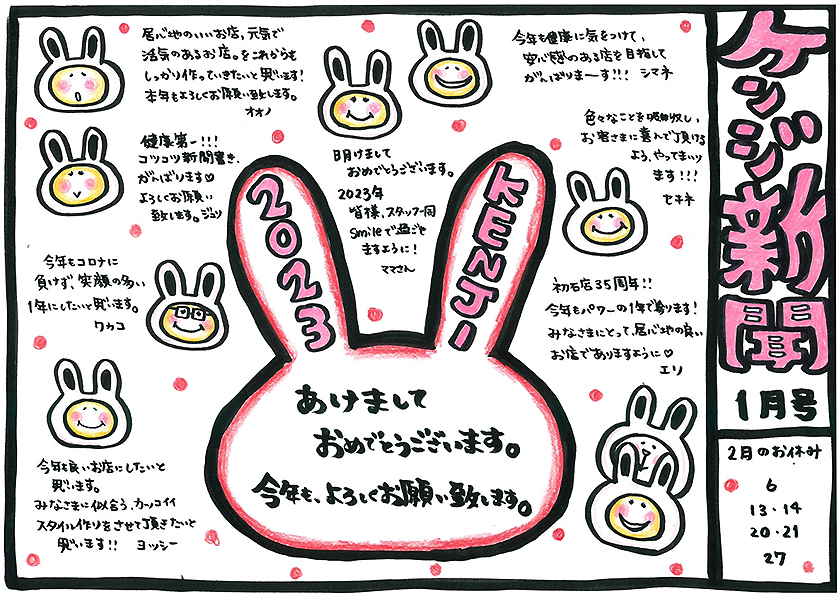 ケンジ新聞
1月号
2月のお休み
6
13・14
20・21
27
今年も健康に気をつけて、
安心感のある店を目指して
がんばりまーす!!! シマネ
色々なことを吸収し、
お客さまに喜んで頂ける
よう、やってまいり
ます!!! セキネ
初石店35周年!!
今年もパワーの1年で参ります!
みなさまにとって、居心地の良い
お店でありますように♡
エリ
明けまして
おめでとうございます。
2023年
皆様、スタッフ一同
Smileで過ごせ
ますように!
ママさん
居心地のいいお店、元気で
活気のあるお店。をこれからも
しっかり作っていきたいと思います!
本年もよろしくお願い致します。
オオノ
健康第一!!!
コツコツ新聞書き、
がんばります♡
よろしくお願い
致します。ジュリ
今年もコロナに
負けず、笑顔の多い
1年にしたいと思います。
ワカコ
今年も良いお店にしたいと
思います。
みなさまに似合う、カッコイイ
スタイル作りをさせて頂きたいと
思います!! ヨッシー
2023
KENJI
あけまして
おめでとうございます。
今年も、よろしくお願い致します。